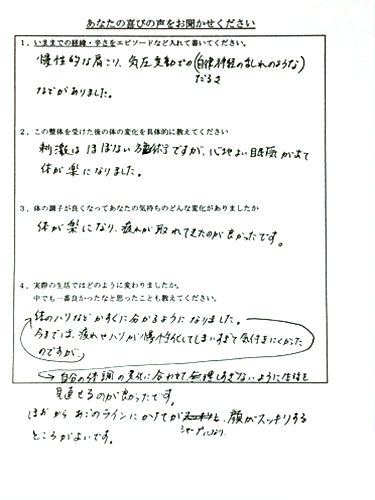 あなたの喜びの声をお聞かせください
1、いままでの経緯・辛さをエピソードなど入れて書いてください。
慢性的な肩こり、気圧変動での(自律神経の乱れのような)
だるさ
などがありました。
2、この整体を受けた後の体の変化を具体的に教えてください
刺激はほぼない施術ですが、心地よい眠気が出て
体が楽になりました。
3、体の調子が良くなってあなたの気持ちのどんな変化がありましたか
体が楽になり、疲れが取れてきたのが良かったです。
4、実際の生活ではどのように変わりましたか。
中でも一番良かったなと思ったことも教えてください。
体のハリなどがすぐに分かるようになりました。
今までは、疲れやハリが慢性化してしまいすぎて気付きにくかった
のですが、
自分の体調の変化に合わせて無理しすぎないように生活を
見直せるのが良かったです。
ほおからあごのラインにかけてが シャープになり、顔がスッキリする
ところがよいです。